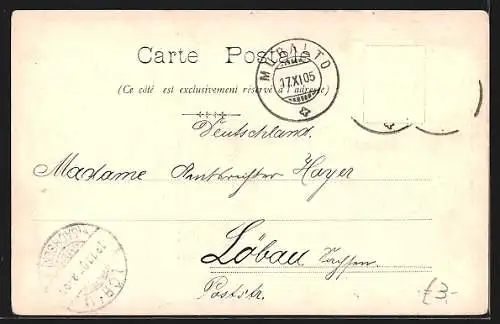 Carte Postale
MURALTO
17.XI.05
(Ce côté est exclusivement réservé à l'adresse)
Deutschland.
Madame Amtsrichter Hayer
Löbau Sachsen.
Poststr.
£3-